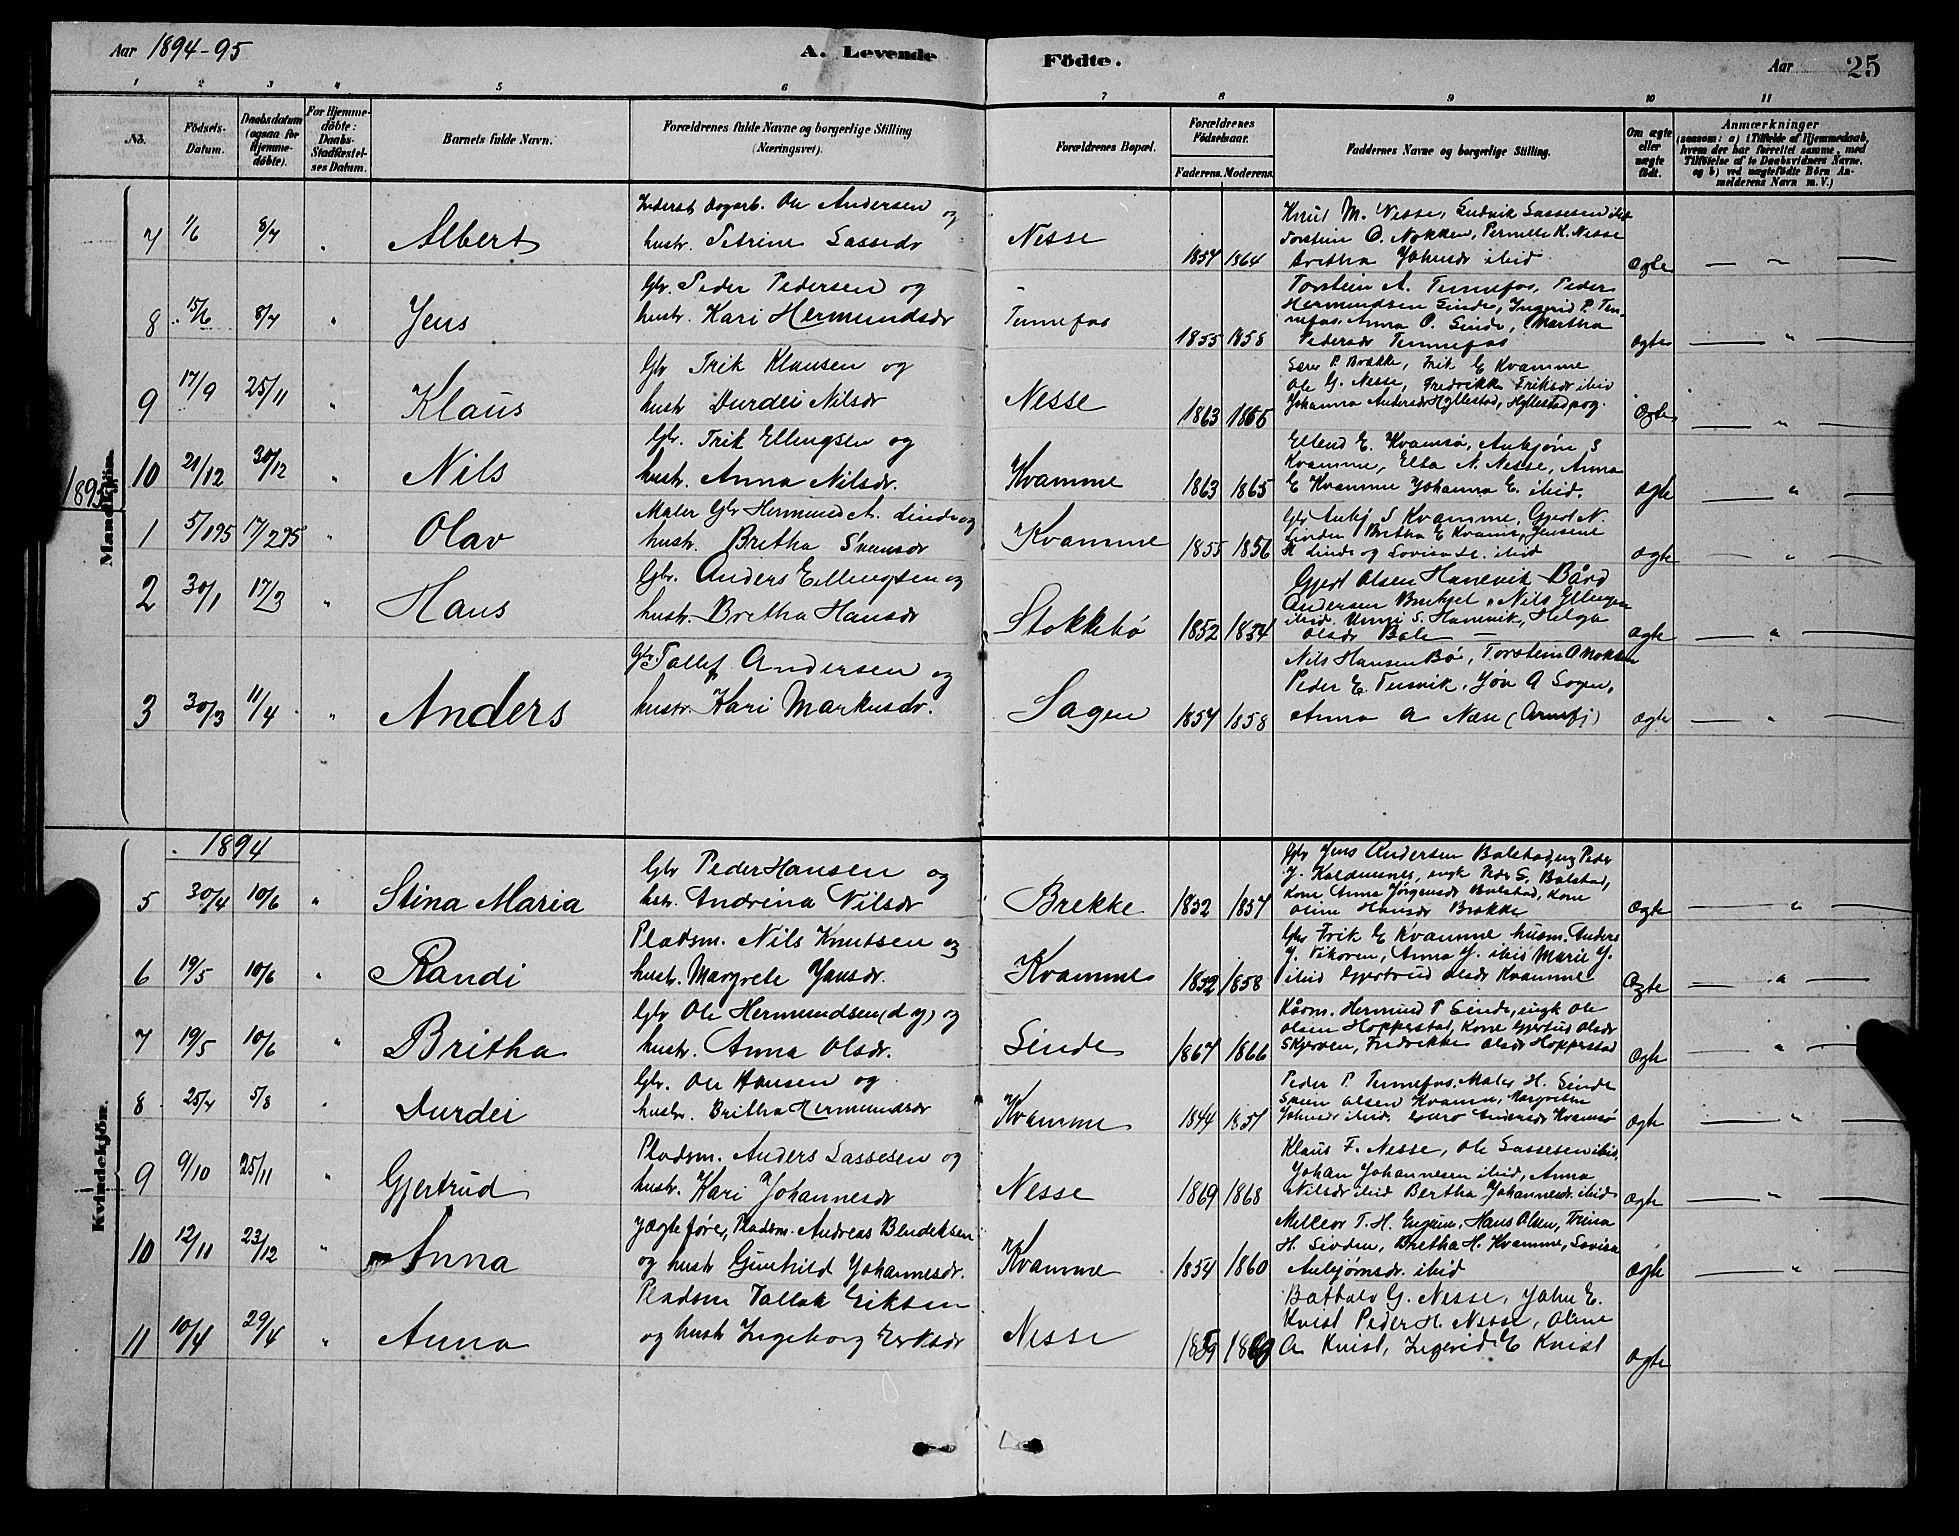 Aar 1894-95 A. Levende Födte. Aar 25
1 2 3 4 5 6 7 8 9 10 11
No.
Födsels-Datum.
Daabsdatum (ogsaa for Hjemme-döbte).
For Hjemme-döbte: Daabs-Stadfæstel-ses Datum.
Barnets fulde Navn.
Forældrenes fulde Navne og borgerlige Stilling (Næringsvei).
Forældrenes Bopæl.
Forældrenes Födselsaar.
Faderens. Moderens.
Faddernes Navne og borgerlige Stilling.
Om ægte eller uægte födt.
Anmærkninger
(saasom: a) i Tilfælde af Hjemmedaab, hvem der har forrettet samme, med Tilföielse af to Daabsvidners Navne. og b) ved uægtefödte Börn An-melderens Navn m. V.)
Mandkjön.
7 1/6 8/7 " Albert
Ole Andersen og
hustr. Petrine Lassedr
Nesse 1857 1864
Knut M. Nesse, Ludvik Lassesen ibid
Torstein O. Nokken, Pernille K. Nesse
Bretha Johnsdr ibid
ægte — " —
8 15/6 8/7 " Jens
Gbr. Peder Pedersen og
hustr. Kari Hermundsdr
Tennefos 1855 1858
Torstein A. Tennefos, Peder
Hermundsen Sinde, Ingerid P. Ten-
nefos, Anna O. Sinde, Martha
Pedersdr Tennefos
ægte — " —
9 17/9 25/11 " Klaus
Gbr Erik Klausen og
hustr Durdei Nilsdr
Nesse 1863 1865
P. Brekke, Erik E Kvamme
Ole G. Nesse, Fredrikke Eriksdr ibid
Johanna Andersdr Hyllestad, Hyllestad pgj.
ægte — " —
10 21/12 30/12 " Nils
Gbr. Erik Ellingsen og
hustr. Anna Nilsdr.
Kvamme 1863 1865
Ellend E. Kvamsø, Anbjørn S
Kvamme, Elba N. Nesse, Anna
E Kvamme Johanna E. ibid.
ægte — " —
1895
1 5/1 95 17/2 95 " Olav
Maler Gbr Hermund A. Sinde og
hustr. Bretha Svensdr
Kvamme 1855 1856
Gbr Anbj S Kvamme, Gjert N.
Sinden Bretha E Kvams, Jensine
H Sinde og Lovisa H. ibid
ægte — " —
2 30/1 17/3 " Hans
Gbr. Anders Ellingsen og
hustr. Bretha Hansdr
Stokkebø 1852 1854
Gjert Olsen Hanevik Bård
Andersen Nils Ellingsen
ibid. Unni S. Hanevik, Helga
Olsdr Bale —
ægte — " —
3 30/3 11/4 " Anders
Gbr Tollef Andersen og
hustr. Kari Markusdr.
Sagen 1857 1858
Nils Hansen Bø, Torstein O Nokken
Peder E. Tensvik, Jon A Sogen,
Anna A Næse (Arnefj)
ægte — " —
Kvindekjön.
1894
5 30/4 10/6 " Stina Maria
Gbr Peder Hansen og
hstr. Andrina Nilsdr
Brekke 1852 1857
Gbr Jens Andersen Bolstad og Peder
J. Kaldennes, ungk Peder S. Bolstad,
Kone Anna Jørgensdr Bolstad, Kone
Oline Hansdr Brekke
ægte — " —
6 19/5 10/6 " Randi
Pladsm. Nils Knutsen og
hustr. Margrete Jansdr.
Kvamme 1852 1858
Gbr Erik E Kvamme husm. Anders
J. Vikøren, Anna J. ibid Marie J.
ibid Gjertrud Olsdr Kvamme
Ægte — " —
7 19/5 10/6 " Britha
Gbr Ole Hermundsen (d y) og
hustr. Anna Olsdr.
Sinde 1867 1866
Kårm. Hermund P Sinde, ungk Ole
Olsen Hopperstad, Kone Gjertrud Olsdr
Skjerven, Fredrikke Olsdr Hopperstad
ægte — " —
8 25/4 5/8 " Durdei
Gbr. Ole Hansen og
hustr. Britha Hermundsdr
Kvamme 1844 1857
Peder P. Tennefos, Maler H. Sinde
Svein Olsen Kvamme, Margretha
Johnsdr ibid. Guro Andersdr Kvamsø
ægte — " —
9 9/10 25/11 " Gjertrud
Pladsm. Anders Lassesen og
hustr. Kari Johannesdr
Nesse 1869 1868
Klaus F. Nesse, Ole Lassesen ibid,
Johan Johannesen ibid, Anna
Nilsdr ibid Bertha Johannesdr. ibid
ægte — " —
10 12/11 23/12 " Anna
Jægtefører, Pladsm. Andreas Bendiksen
og hustr Gunhild Johannesdr.
Kvamme 1854 1860
Melkior T. H. Engum, Hans Olsen, Trina
H. Sinden, Bretha H. Kvamme, Lovisa
Anbjørnsdr. ibid
ægte — " —
11 10/4 29/4 " Anna
Pladsm Tollak Eriksen
og hustr Ingeborg Eriksdr
Nesse 1859
G. Nesse, John E.
Kvist Peder H. Nesse, Oline
A Kvist, Ingerid E Kvist
ægte